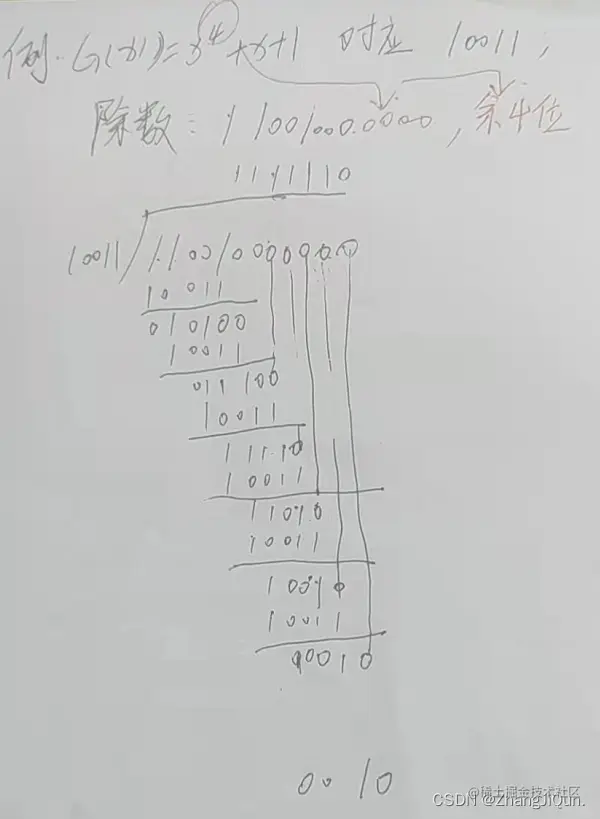 例. G(x)=x⁴+x+1 对应 10011,
除数: 1100100 0.0000, 余4位
1111110
10011/11001000000
10011
010100
10011
011100
10011
11110
10011
11010
10011
10010
10011
00010
0010
@稀土掘金技术社区
CSDN @zhangJiQun.